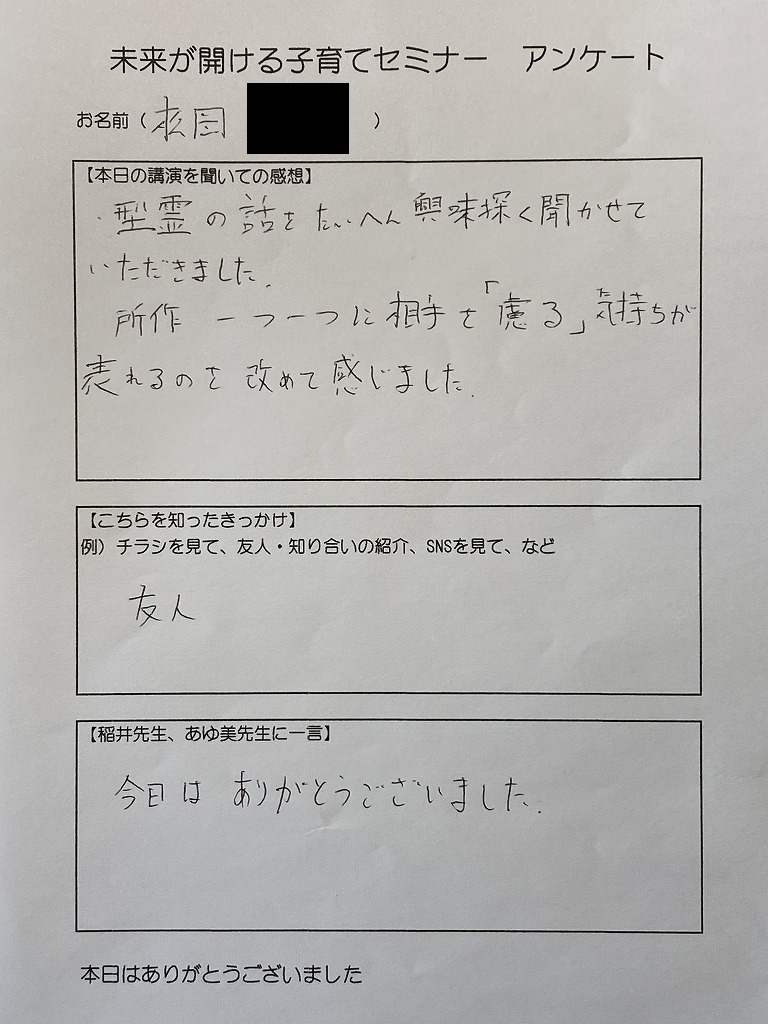 未来が開ける子育てセミナー　アンケート
お名前（松岡　　　）
【本日の講演を聞いての感想】
・型霊の話をたいへん興味深く聞かせて
いただきました.
所作 一つ一つに相手を「慮る」気持ちが
表れるのを改めて感じました.
【こちらを知ったきっかけ】
例）チラシを見て、友人・知り合いの紹介、SNSを見て、など
友人
【稲井先生、あゆ美先生に一言】
今日は ありがとうございました.
本日はありがとうございました